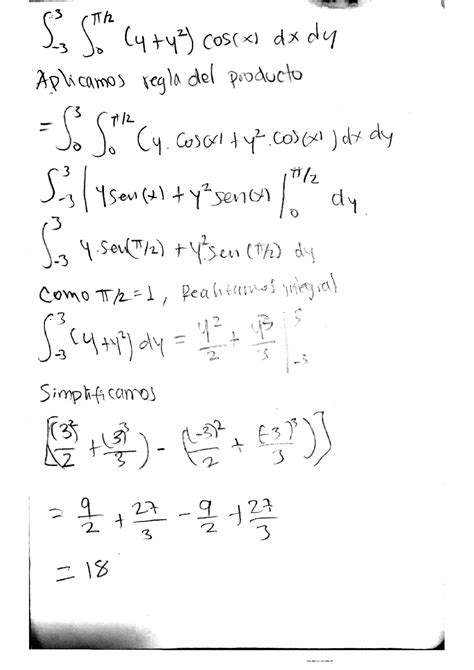 ∫₋₃³ ∫₀^π/2 (y+y²) cos(x) dx dy
Aplicamos regla del producto
= ∫₀³ ∫₀^π/2 (y.cos(x)+y².cos(x)) dx dy
∫₋₃³ | ysen(x) + y²sen(x) |₀^π/2 dy
∫₋₃³ y.sen(π/2) + y²sen(π/2) dy
Como π/2=1, Realitamos integral
∫₋₃³ (y+y²) dy = y²/2 + y³/3 |₋₃³
Simplificamos
[((3)²/2 + (3)³/3) - ((-3)²/2 + (-3)³/3)]
= 9/2 + 27/3 - 9/2 + 27/3
= 18